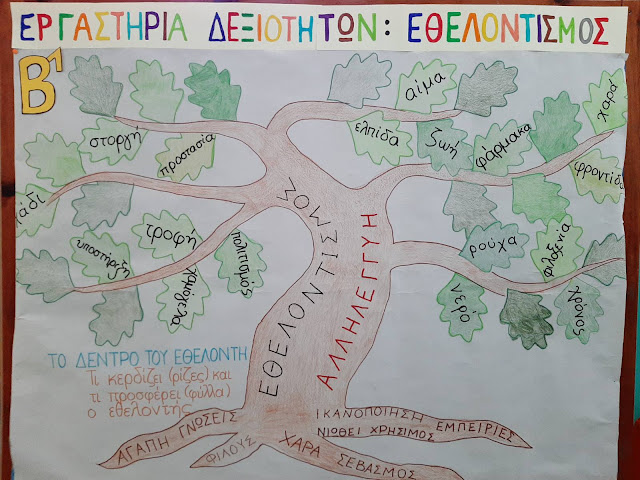 ΕΡΓΑΣΤΗΡΙΑ ΔΕΞΙΟΤΗΤΩΝ: ΕΘΕΛΟΝΤΙΣΜΟΣ
Β1
αίμα
χαρά
στοργή
προστασία
ελπίδα
ζωή
φάρμακα
φροντίδα
τροφή
υποστήριξη
χαμόγελα
πολιτισμός
ρούχα
φιλοξενία
νερό
χρόνος
ΕΘΕΛΟΝΤΙΣΜΟΣ
ΑΛΛΗΛΕΓΓΥΗ
ΤΟ ΔΕΝΤΡΟ ΤΟΥ ΕΘΕΛΟΝΤΗ
Τι κερδίζει (ρίζες) και
τι προσφέρει (φύλλα)
ο εθελοντής
ΑΓΑΠΗ ΓΝΩΣΕΙΣ
ΦΙΛΟΥΣ
ΧΑΡΑ ΣΕΒΑΣΜΟΣ
ΙΚΑΝΟΠΟΙΗΣΗ
ΝΙΩΘΕΙ ΧΡΗΣΙΜΟΣ
ΕΜΠΕΙΡΙΕΣ